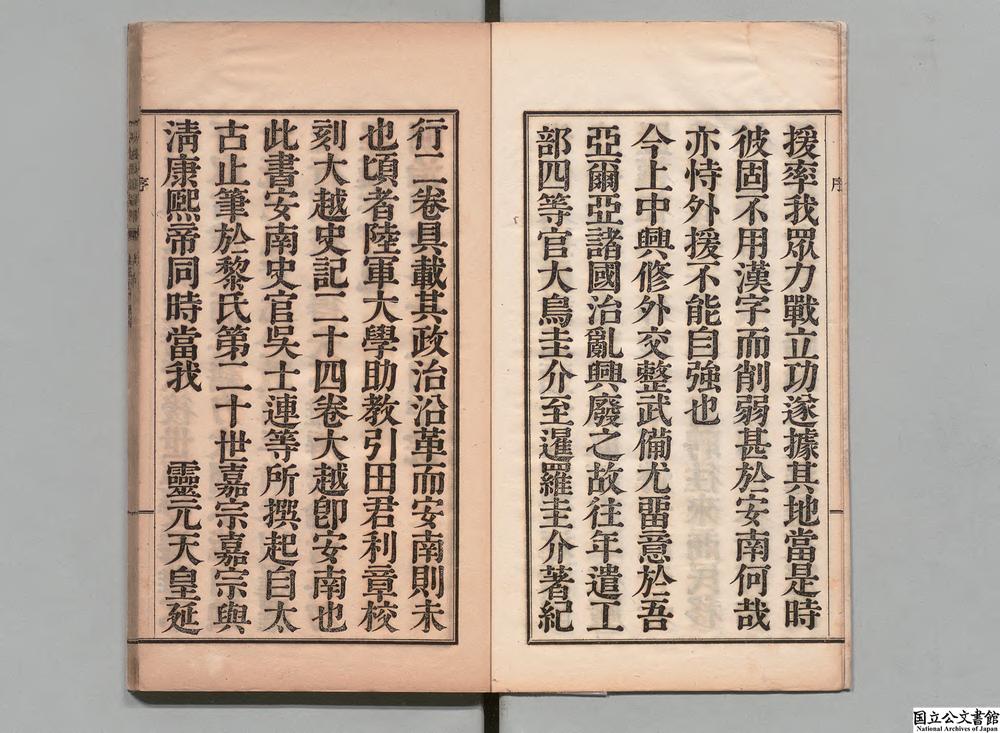 序
援率我眾力戰立功遂據其地當是時
彼固不用漢字而削弱甚於安南何哉
亦恃外援不能自強也
今上中興修外交整武備尤畱意於吾
亞爾亞諸國治亂興廢之故往年遣工
部四等官大鳥圭介至暹羅圭介著紀
行二卷具載其政治沿革而安南則未
也頃者陸軍大學助教引田君利章校
刻大越史記二十四卷大越卽安南也
此書安南史官吳士連等所撰起自太
古止筆於黎氏第二十世嘉宗嘉宗與
淸康熙帝同時當我 靈元天皇延
序
国立公文書館
National Archives of Japan